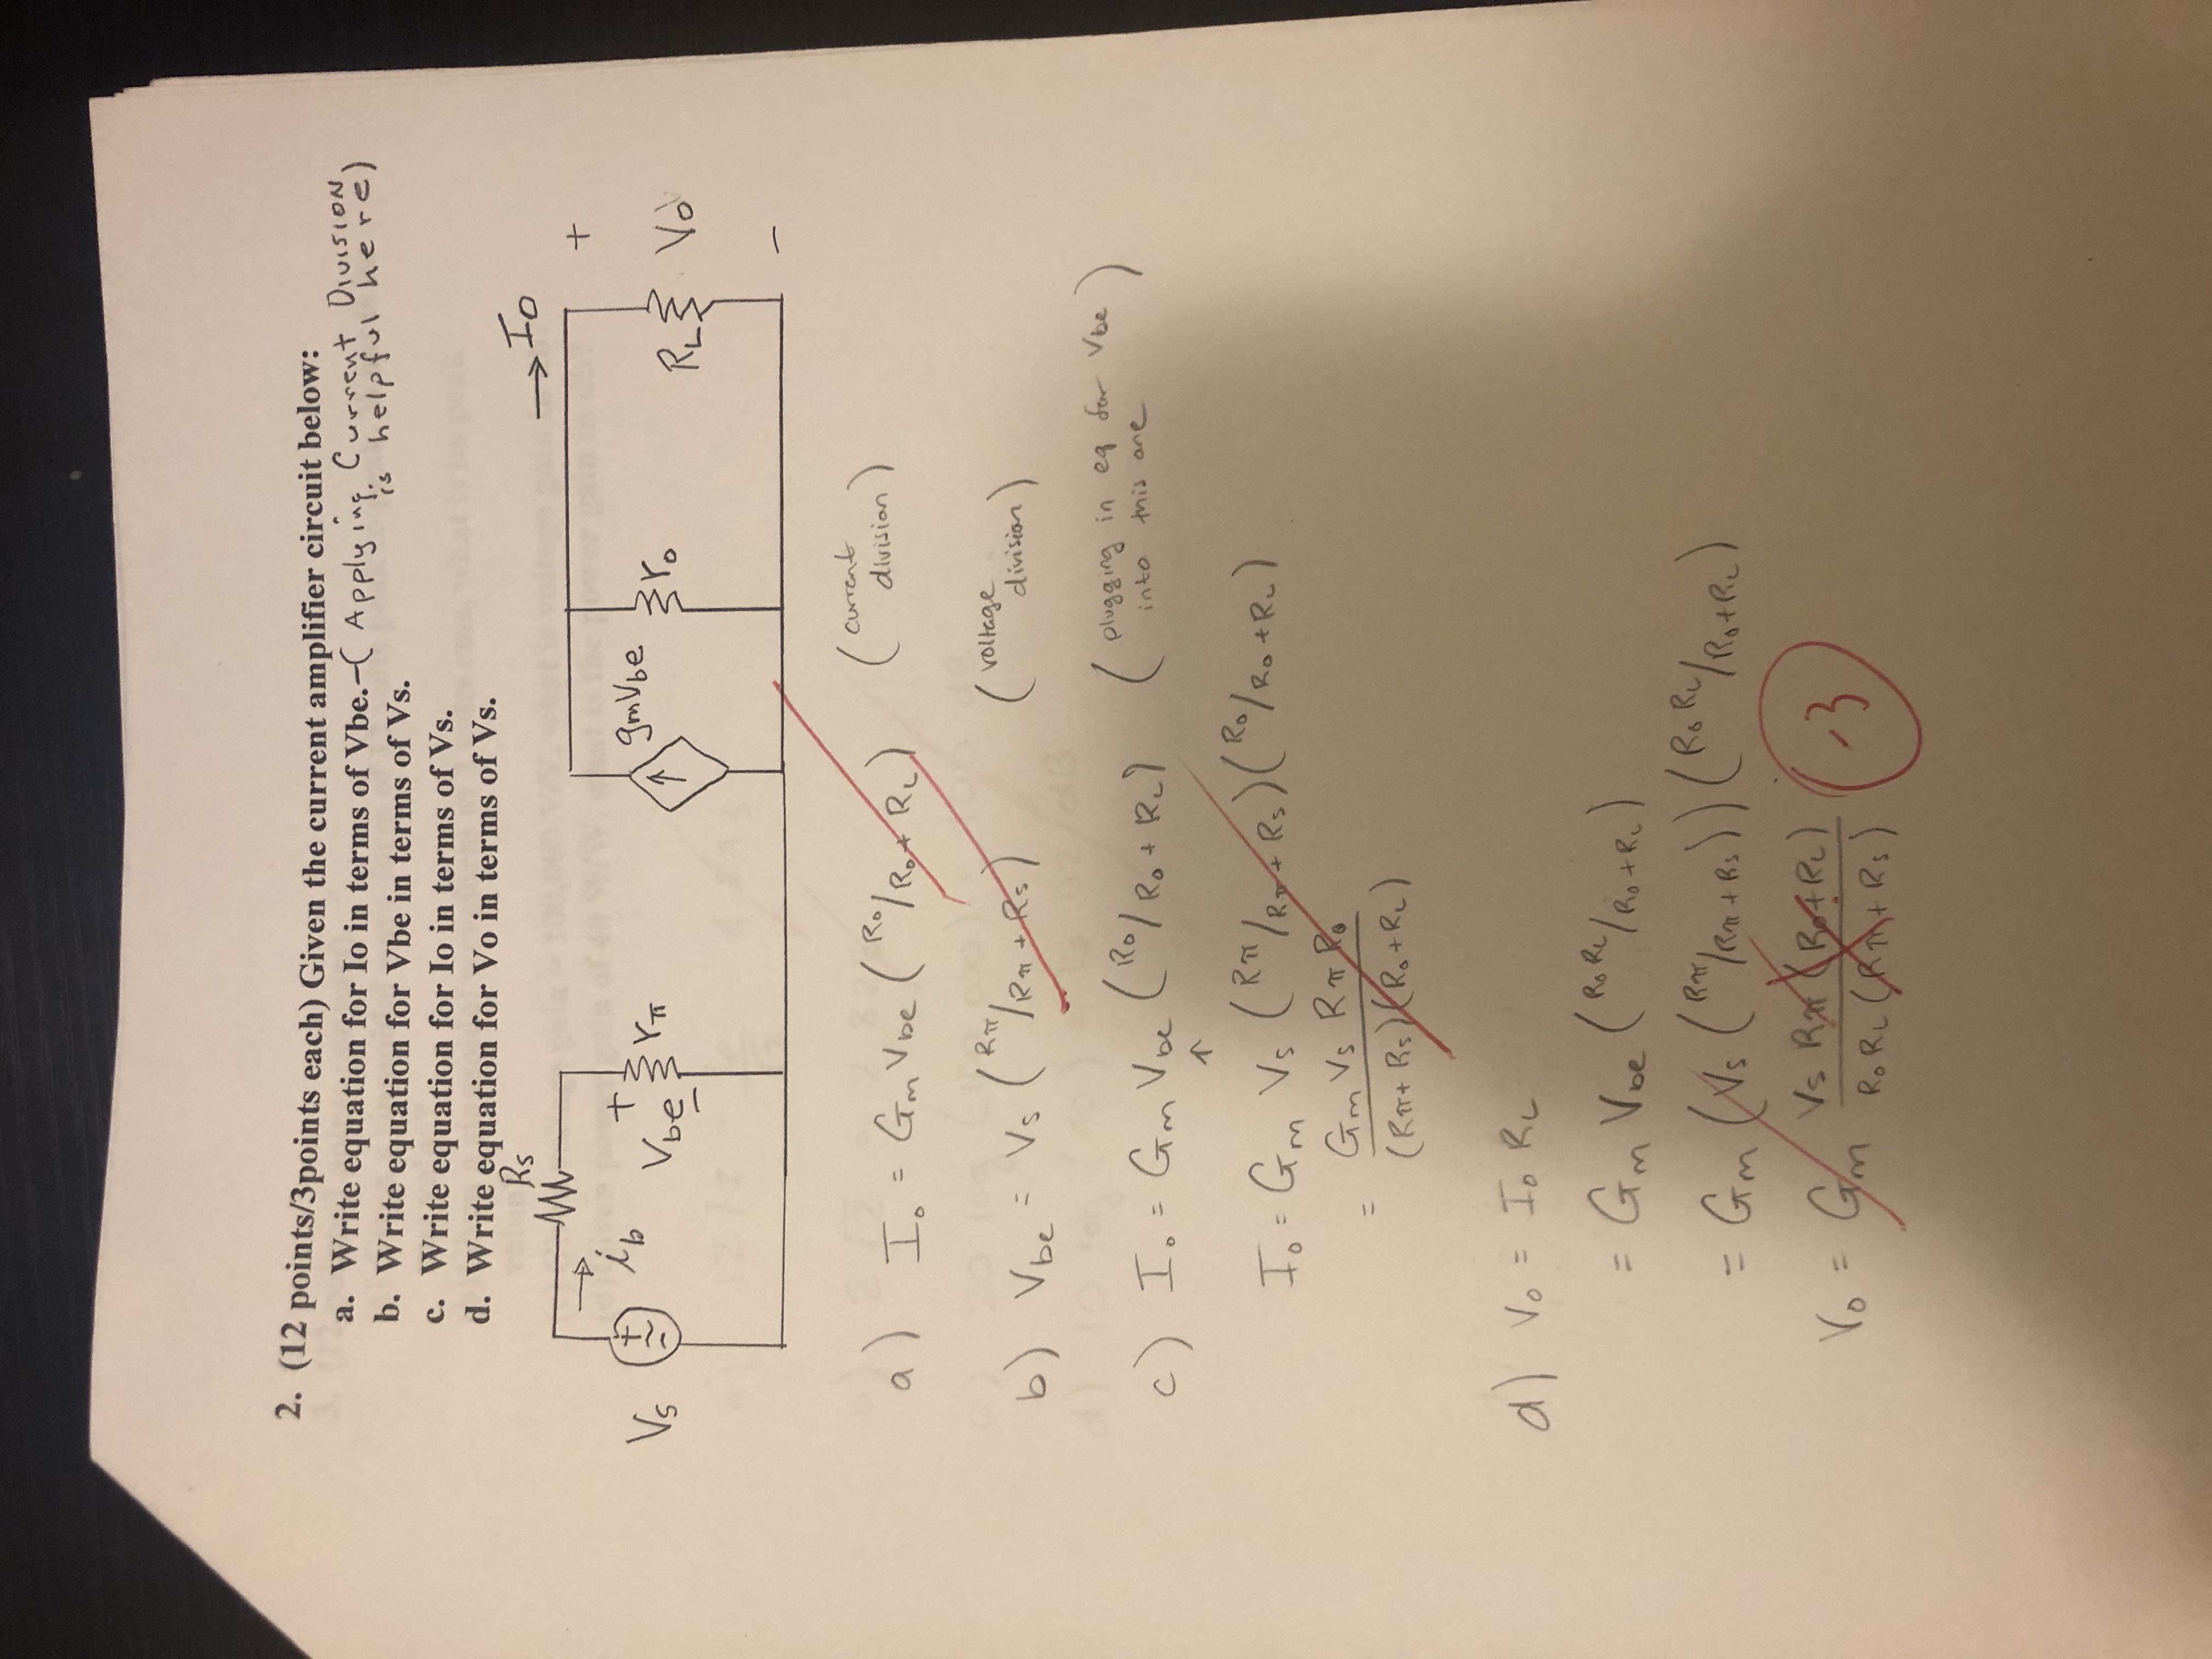 2. (12 points/3points each) Given the current amplifier circuit below:
a. Write equation for Io in terms of Vbe. -( Applying Current Division,
is helpful here)
b. Write equation for Vbe in terms of Vs.
c. Write equation for Io in terms of Vs.
d. Write equation for Vo in terms of Vs.
Rs
→ Io
ib
+
Vs
+
Vbe
−
rπ
gmVbe
ro
RL
Vo
−
a) Io = Gm Vbe ( Ro/Ro + RL ) ( current
division )
b) Vbe = Vs ( Rπ/Rπ + Rs ) ( voltage
division )
c) Io = Gm Vbe ( Ro/Ro + RL ) ( plugging in eq for Vbe
into this one )
↑
Io = Gm Vs ( Rπ/Rπ + Rs )( Ro/Ro + RL )
= Gm Vs Rπ Ro
(Rπ + Rs)(Ro + RL)
d) Vo = Io RL
= Gm Vbe ( Ro RL/Ro + RL )
= Gm ( Vs ( Rπ/Rπ + Rs )) ( Ro RL/Ro + RL )
Vo = Gm Vs Rπ (Ro + RL)
Ro RL (Rπ + Rs)
-3